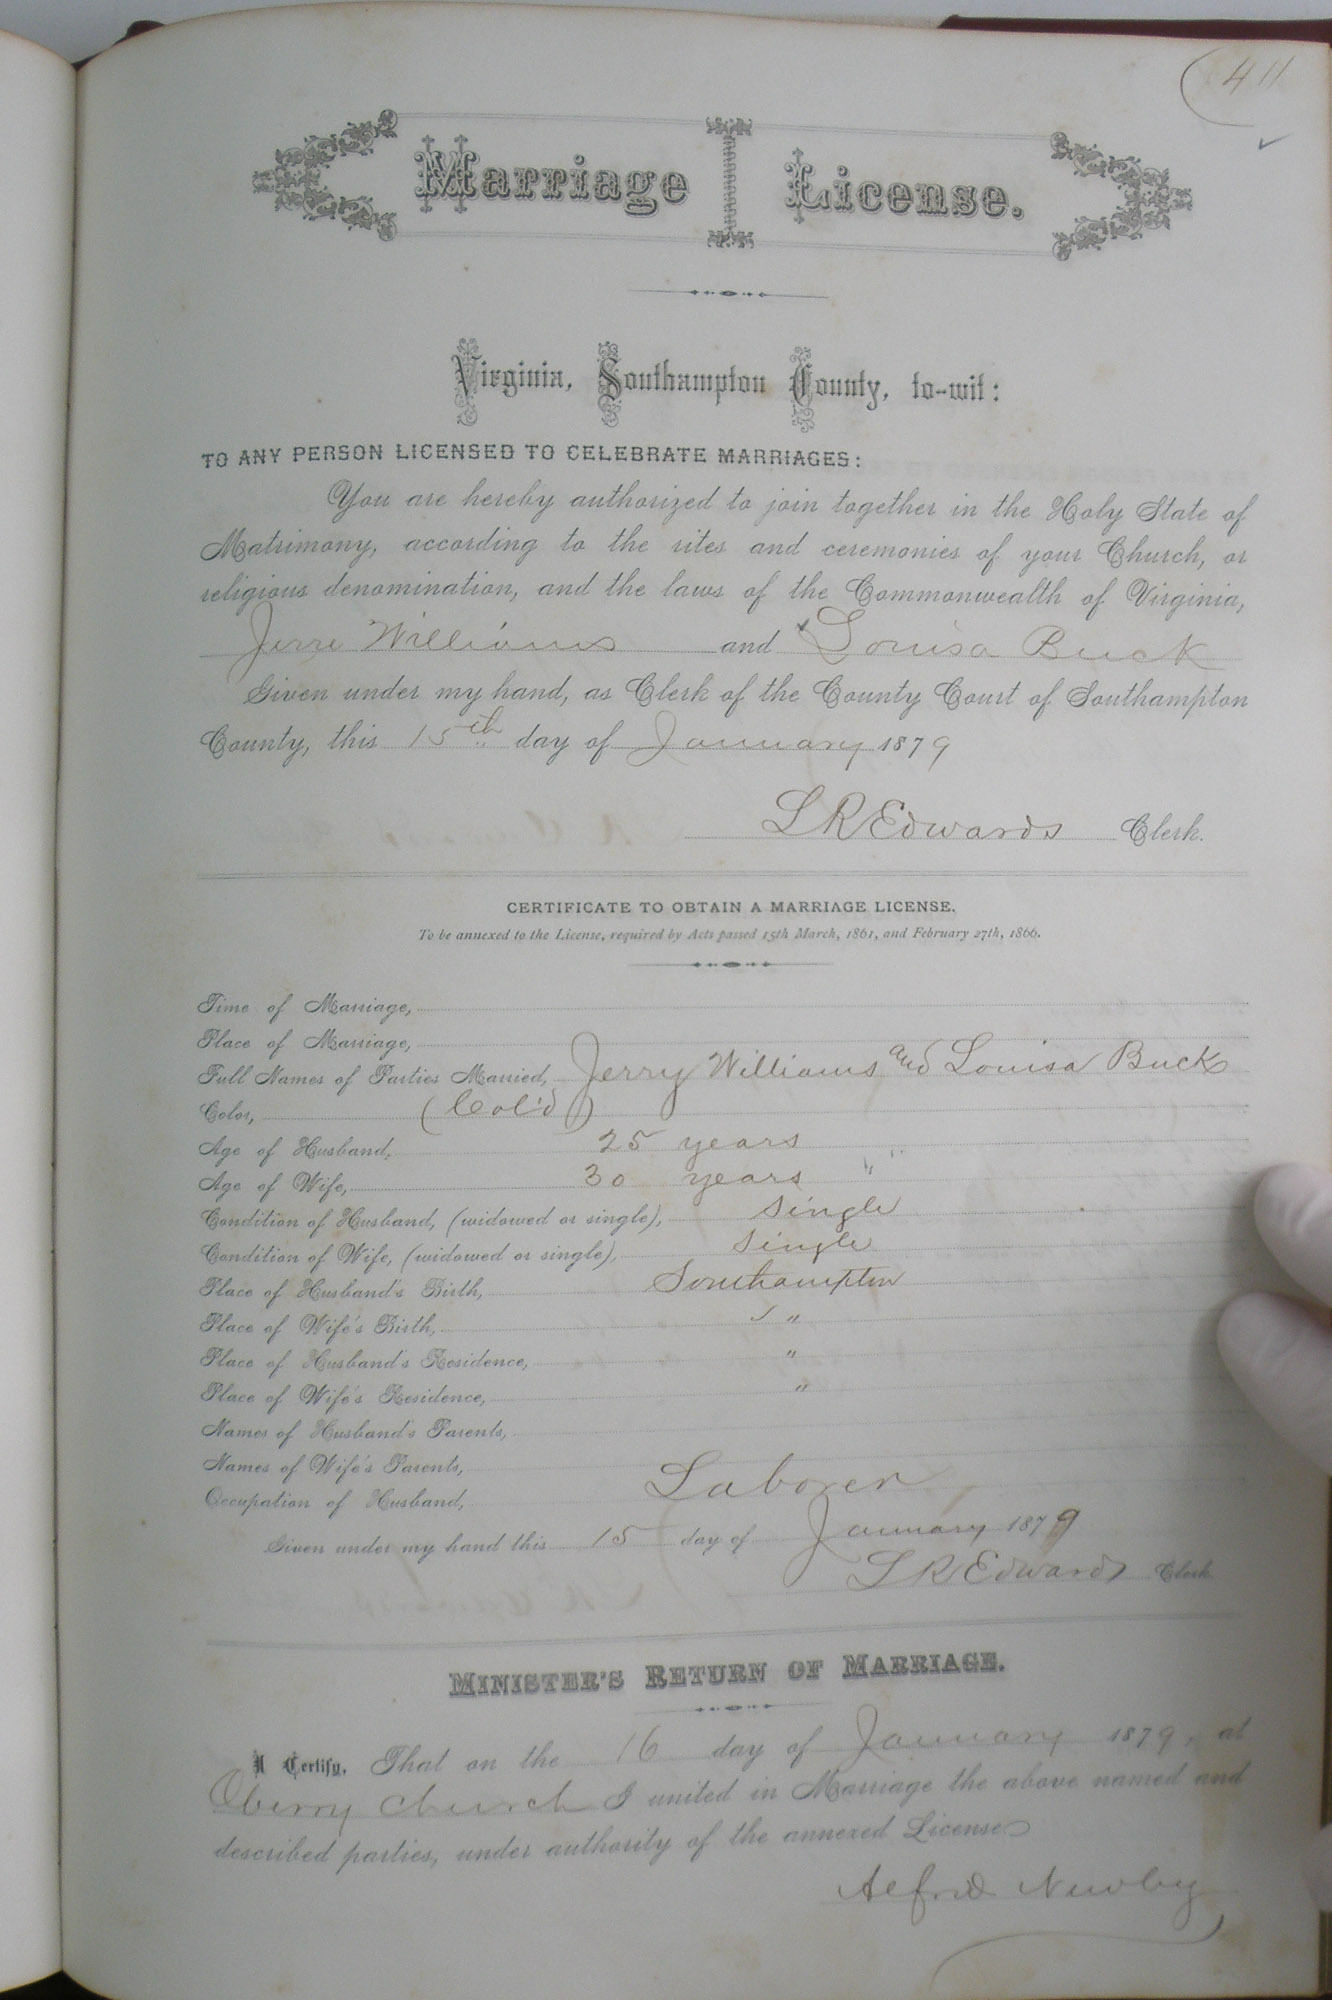 411
Marriage License.
Virginia, Southampton County, to-wit:
TO ANY PERSON LICENSED TO CELEBRATE MARRIAGES:
You are hereby authorized to join together in the Holy State of
Matrimony, according to the rites and ceremonies of your Church, or
religious denomination, and the laws of the Commonwealth of Virginia,
Jerre Williams and Louisa Buck
Given under my hand, as Clerk of the County Court of Southampton
County, this 15th day of January 1879
L R Edwards Clerk.
CERTIFICATE TO OBTAIN A MARRIAGE LICENSE.
To be annexed to the License, required by Acts passed 15th March, 1861, and February 27th, 1866.
Time of Marriage,
Place of Marriage,
Full Names of Parties Married, Jerry Williams and Louisa Buck
Color, (Col'd)
Age of Husband, 25 years
Age of Wife, 30 years
Condition of Husband, (widowed or single), Single
Condition of Wife, (widowed or single), Single
Place of Husband's Birth, Southampton
Place of Wife's Birth, "
Place of Husband's Residence, "
Place of Wife's Residence, "
Names of Husband's Parents,
Names of Wife's Parents,
Occupation of Husband, Laborer
Given under my hand this 15 day of January 1879
L R Edwards Clerk
MINISTER'S RETURN OF MARRIAGE.
I Certify, That on the 16 day of January 1879, at
Oberry Church I united in Marriage the above named and
described parties, under authority of the annexed License
Alfred Newby